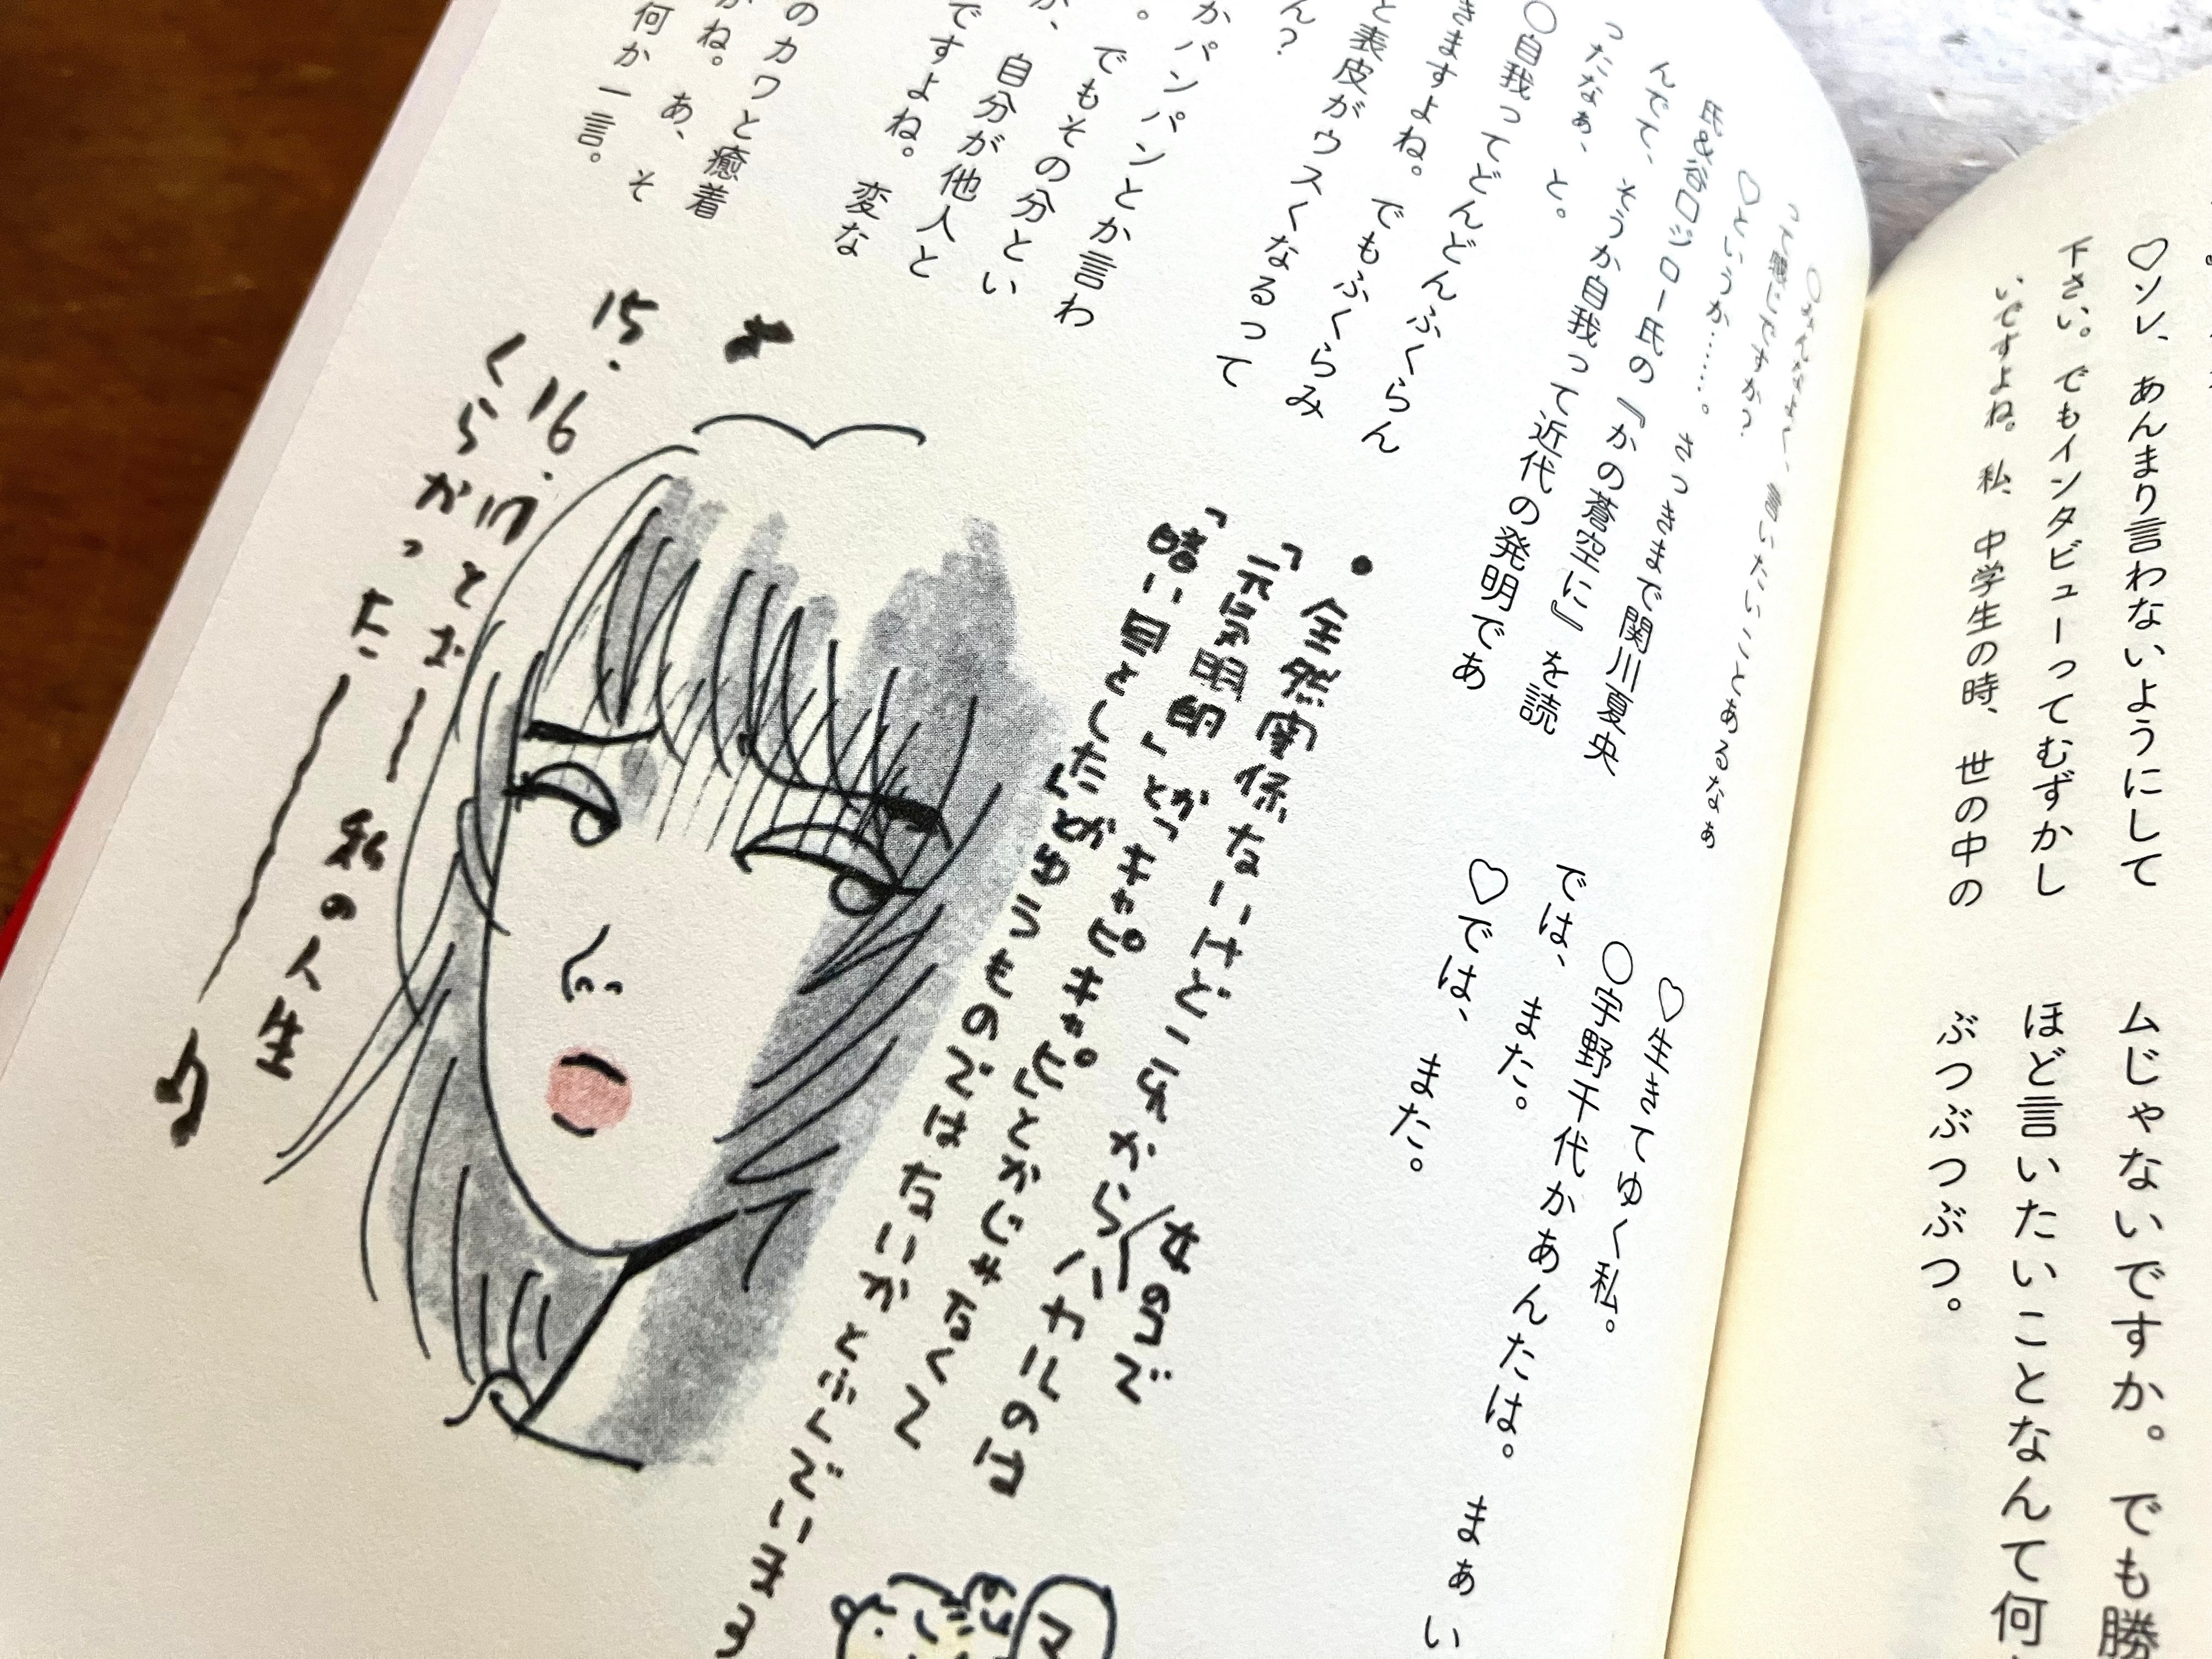 ♡ソレ、あんまり言わないようにして
下さい。でもインタビューってむずかし
いですよね。私、中学生の時、世の中の
ムじゃないですか。でも勝
ほど言いたいことなんて何
ぶつぶつぶつぶつ。
言いたいことあるなぁ
って感じですか？
♡というか……。さっきまで関川夏央
氏&谷口ジロー氏の『かの蒼空に』を読
んでて、そうか自我って近代の発明であ
ったなぁ、と。
○自我ってどんどんふくらん
きますよね。でもふくらみ
と表皮がウスくなるって
ん？
かパンパンとか言わ
。でもその分とい
か、自分が他人と
ですよね。変な
のカワと癒着
かね。あ、そ
何か一言。
♡生きてゆく私。
○宇野千代かあんたは。まぁい
では、また。
♡では、また。
・全然関係ないけどこれから女のコで
「元気明朗」とか「キャピキャピ」とかじゃなくて
「暗い目をした
ものではないかとふんでいます
15.16.17とぉー 私の人生
くらかったー